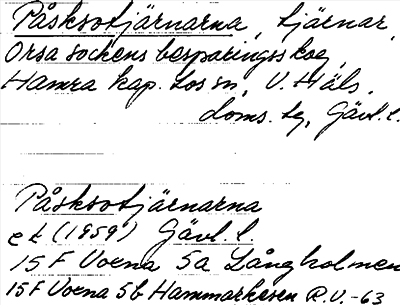 Påsksotjärnarna, tjärnar,
Orsa sockens besparingsskog,
Hamra kap. Los sn, V. Häls.
doms. tg, Gävl. l.
Påsksotjärnarna
ek (1959) Gävl. l.
15 F Voxna 5a Långholmen
15 F Voxna 5b Hammarkesen R.V.-63